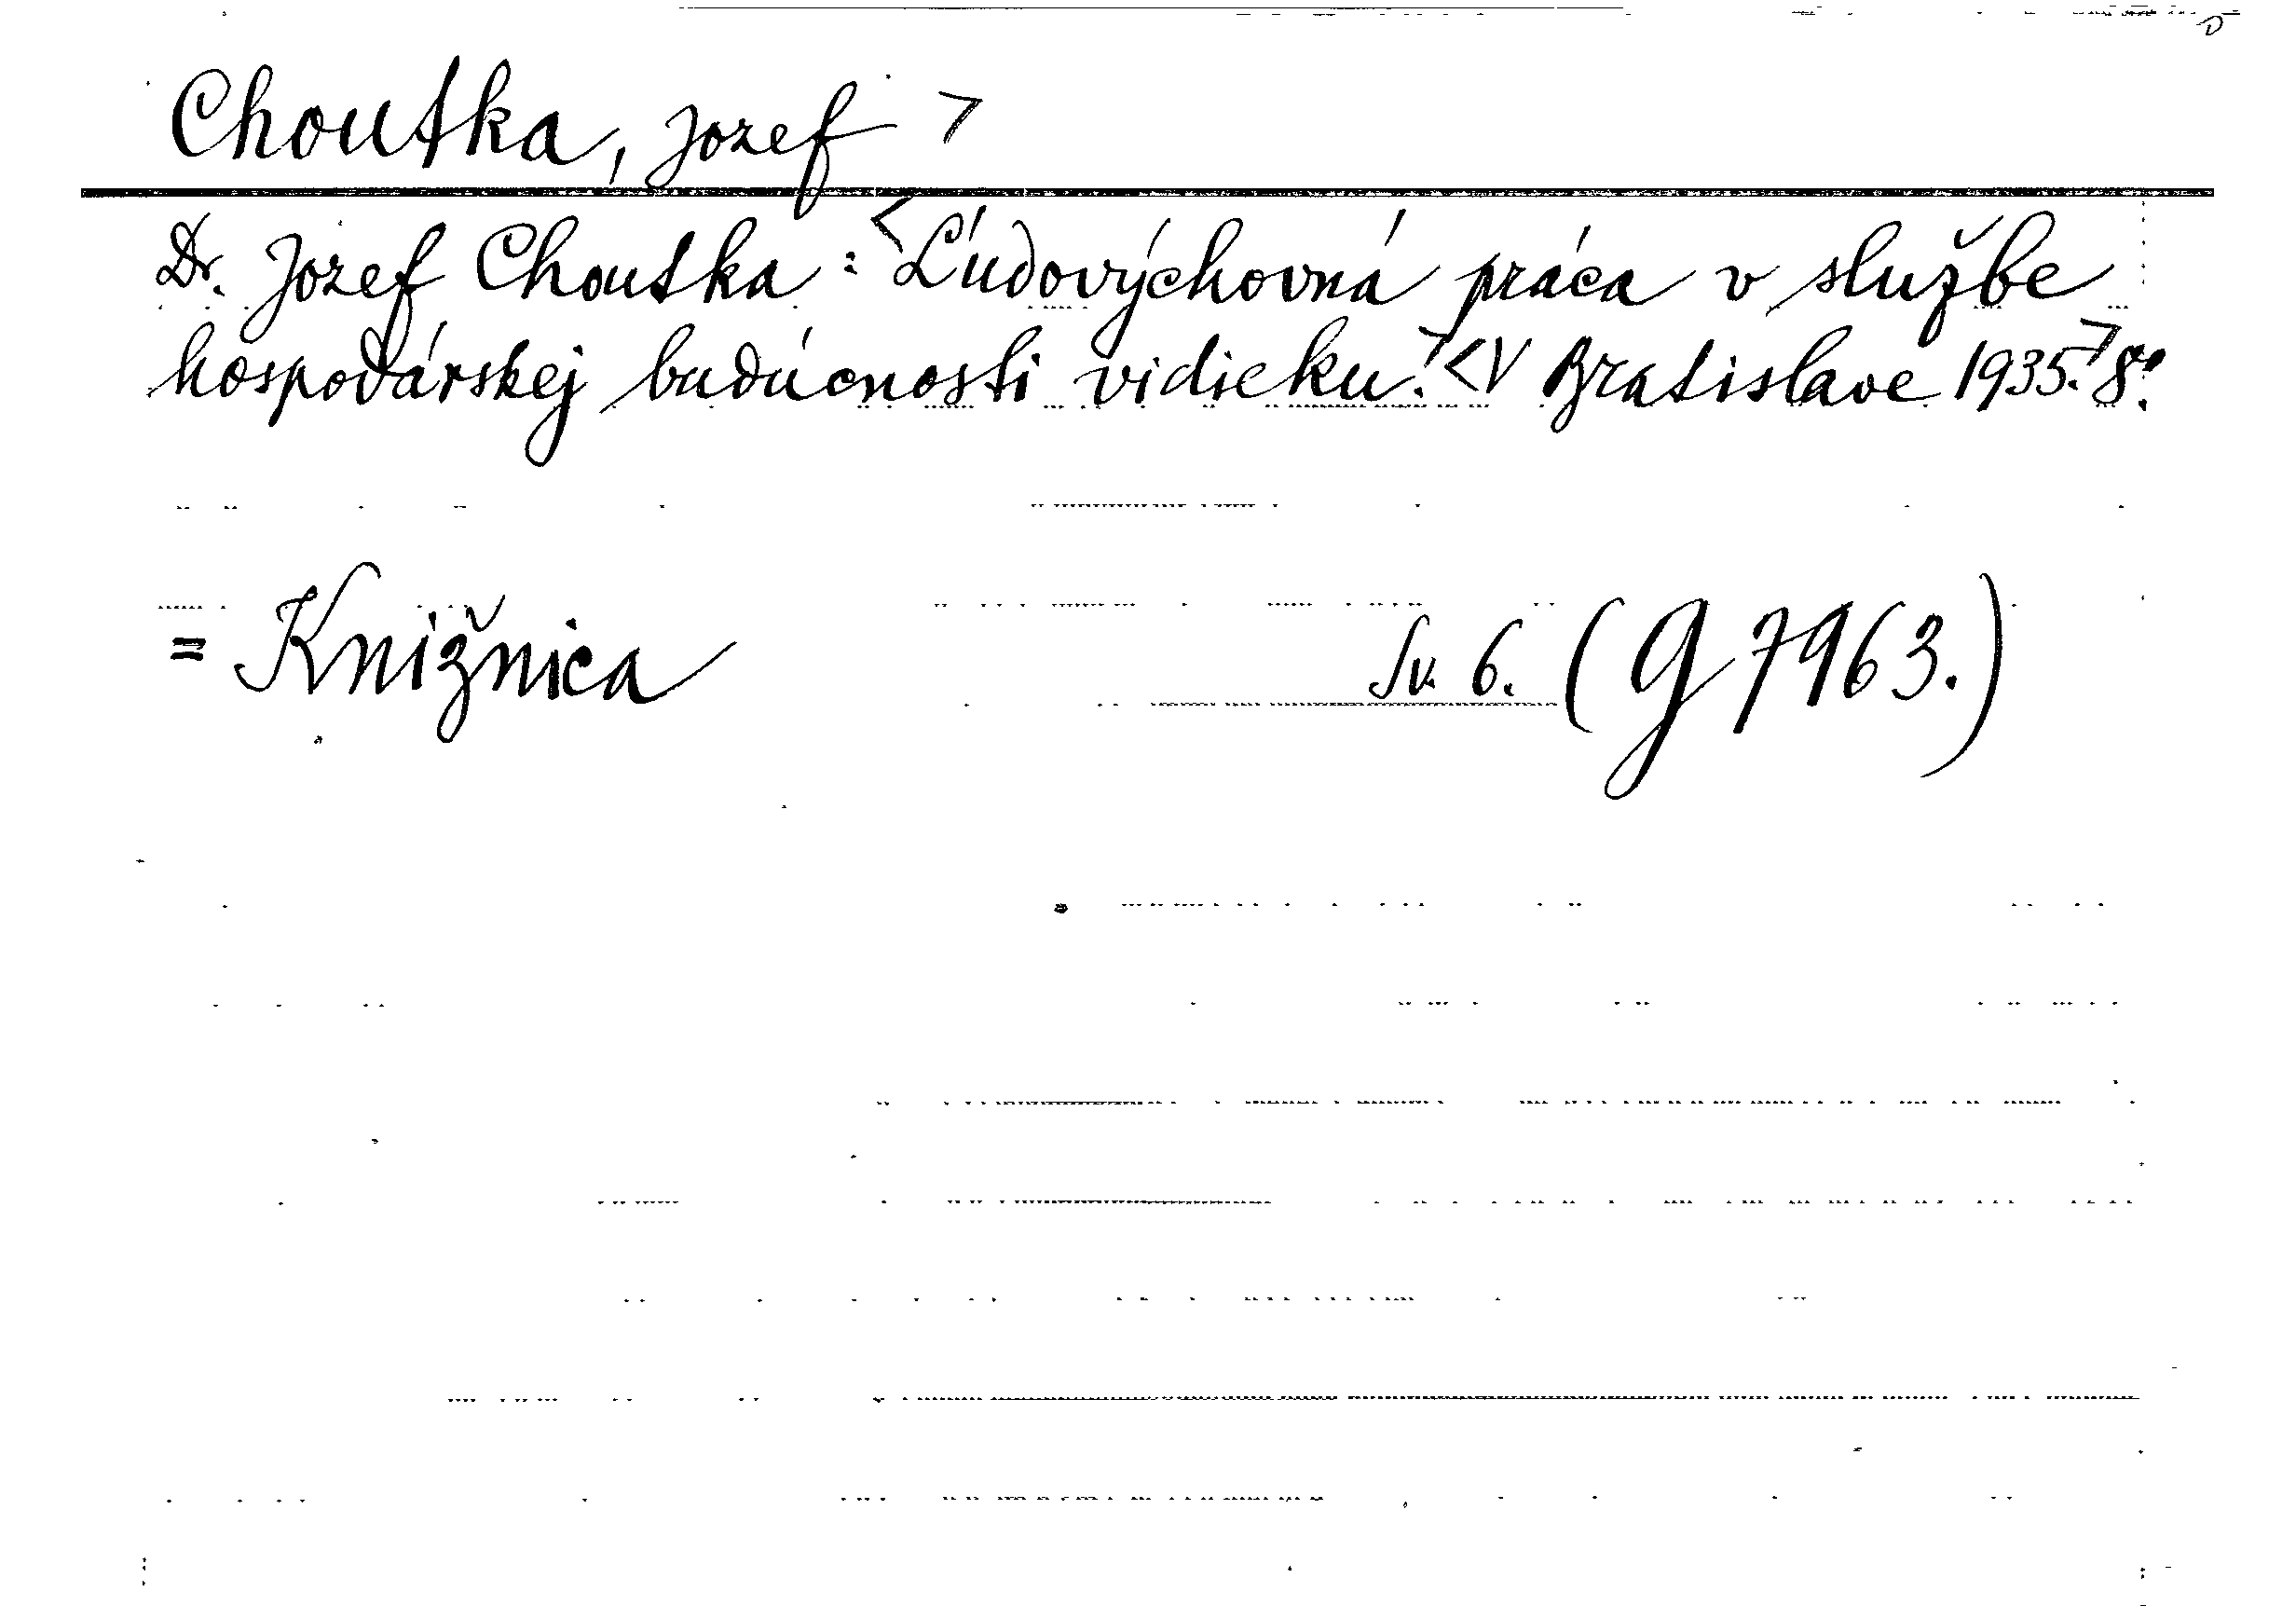 Choutka, Jozef >
Dr. Jozef Choutka: <Ľudovýchovná práca v službe
hospodárskej budúcnosti vidieku.> <V Bratislave 1935.> 8°.
= Knižnica Sv. 6. (G 7963.)